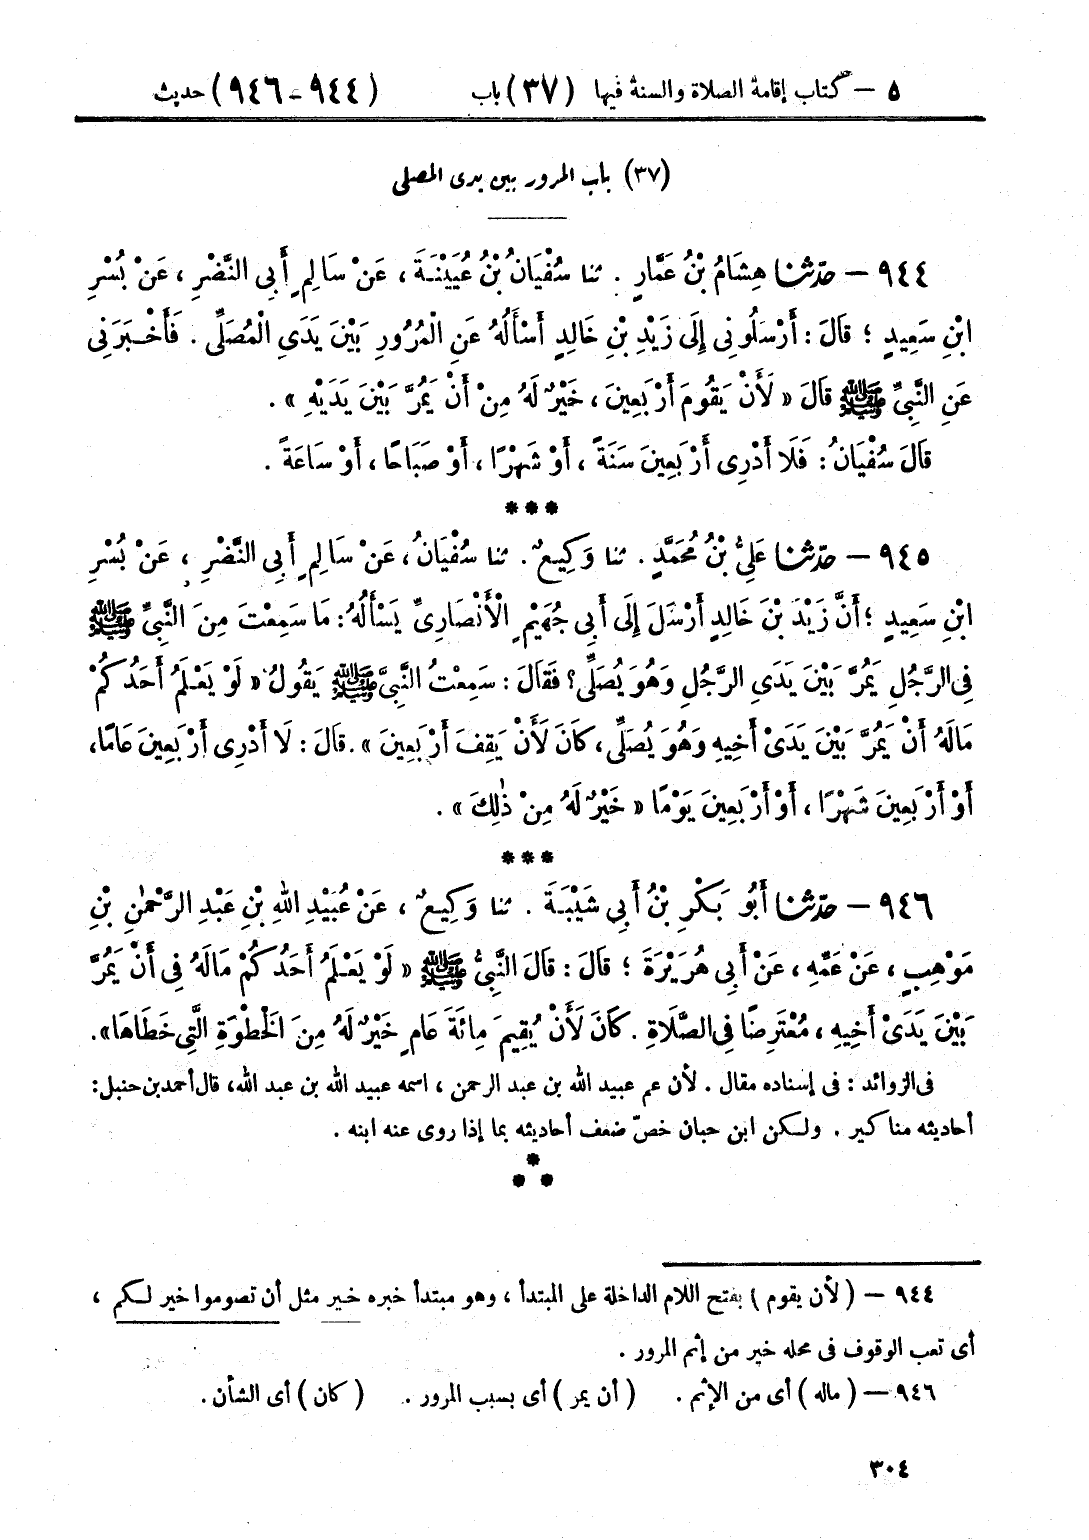 ٥ – كتاب إقامة الصلاة والسنة فيها (٣٧) باب (٩٤٤-٩٤٦) حديث
(٣٧) باب المرور بين يدى المصلى
٩٤٤ – حدّثنا هِشَامُ بْنُ عَمَّارٍ . ثنا سُفْيَانُ بْنُ عُيَيْنَةَ ، عَنْ سَالِمٍ أَبِي النَّضْرِ ، عَنْ بُسْرِ
ابْنِ سَعِيدٍ ؛ قَالَ : أَرْسَلُونِى إِلَى زَيْدِ بْنِ خَالِدٍ أَسْأَلُهُ عَنِ الْمُرُورِ بَيْنَ يَدَىِ الْمُصَلِّى . فَأَخْبَرَنِى
عَنِ النَّبِىِّ ﷺ قَالَ « لَأَنْ يَقُومَ أَرْبَعِينَ ، خَيْرٌ لَهُ مِنْ أَنْ يَمُرَّ بَيْنَ يَدَيْهِ » .
قَالَ سُفْيَانُ : فَلَا أَدْرِى أَرْبَعِينَ سَنَةً ، أَوْ شَهْرًا ، أَوْ صَبَاحًا ، أَوْ سَاعَةً .
***
٩٤٥ – حدّثنا عَلِىُّ بْنُ مُحَمَّدٍ . ثنا وَكِيعٌ . ثنا سُفْيَانُ ، عَنْ سَالِمٍ أَبِي النَّضْرِ ، عَنْ بُسْرِ
ابْنِ سَعِيدٍ ؛ أَنَّ زَيْدَ بْنَ خَالِدٍ أَرْسَلَ إِلَى أَبِي جُهَيْمٍ الْأَنْصَارِىِّ يَسْأَلُهُ : مَا سَمِعْتَ مِنَ النَّبِىِّ ﷺ
فِى الرَّجُلِ يَمُرُّ بَيْنَ يَدَىِ الرَّجُلِ وَهُوَ يُصَلِّى ؟ فَقَالَ : سَمِعْتُ النَّبِىَّ ﷺ يَقُولُ « لَوْ يَعْلَمُ أَحَدُكُمْ
مَالَهُ أَنْ يَمُرَّ بَيْنَ يَدَىْ أَخِيهِ وَهُوَ يُصَلِّى ، كَانَ لَأَنْ يَقِفَ أَرْبَعِينَ » . قَالَ : لَا أَدْرِى أَرْبَعِينَ عَامًا ،
أَوْ أَرْبَعِينَ شَهْرًا ، أَوْ أَرْبَعِينَ يَوْمًا « خَيْرٌ لَهُ مِنْ ذٰلِكَ » .
***
٩٤٦ – حدّثنا أَبُو بَكْرِ بْنُ أَبِي شَيْبَةَ . ثنا وَكِيعٌ ، عَنْ عُبَيْدِ اللهِ بْنِ عَبْدِ الرَّحْمٰنِ بْنِ
مَوْهِبٍ ، عَنْ عَمِّهِ ، عَنْ أَبِي هُرَيْرَةَ ؛ قَالَ : قَالَ النَّبِىُّ ﷺ « لَوْ يَعْلَمُ أَحَدُكُمْ مَالَهُ فِى أَنْ يَمُرَّ
بَيْنَ يَدَىْ أَخِيهِ ، مُعْتَرِضًا فِى الصَّلَاةِ . كَانَ لَأَنْ يُقِيمَ مِائَةَ عَامٍ خَيْرٌ لَهُ مِنَ الْخَطْوَةِ الَّتِى خَطَاهَا ».
فى الزوائد : فى إسناده مقال . لأن عم عبيد الله بن عبد الرحمن ، اسمه عبيد الله بن عبد الله، قال أحمد بن حنبل :
أحاديثه مناكير . ولكن ابن حبان خصّ ضعف أحاديثه بما إذا روى عنه ابنه .
***
٩٤٤ – ( لأن يقوم ) بفتح اللام الداخلة على المبتدأ ، وهو مبتدأ خبره خير مثل أن تصوموا خير لكم ،
أى تعب الوقوف فى محله خير من إثم المرور .
٩٤٦ – ( ماله ) أى من الإثم . ( أن يمر ) أى بسبب المرور . ( كان ) أى الشأن .
٣٠٤